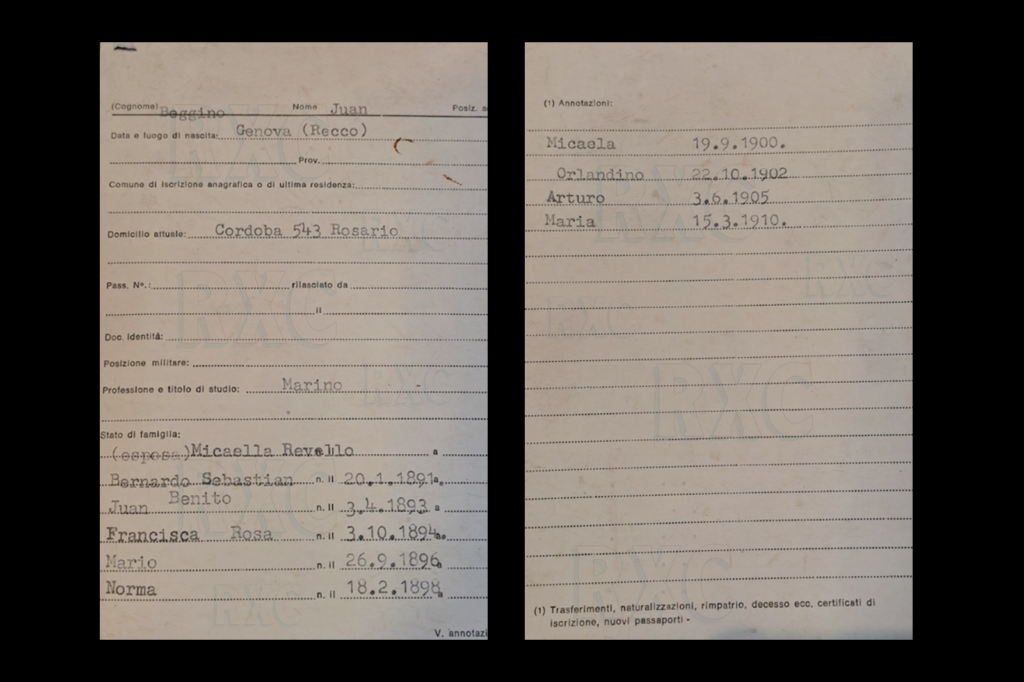 (Cognome) Beggino Nome Juan Posiz. a
Data e luogo di nascita: Genova (Recco)
Prov.
Comune di iscrizione anagrafica o di ultima residenza:
Domicilio attuale: Cordoba 543 Rosario
Pass. Nº.: rilasciato da
il
Doc. Identitá:
Posizione militare:
Professione e titolo di studio: Marino -
Stato di famiglia:
(esposa) Micaella Revello a
Bernardo Sebastian n. il 20.1.1891 a.
Benito
Juan n. il 3.4.1893 a
Francisca Rosa n. il 3.10.1894 a.
Mario n. il 26.9.1896 a
Norma n. il 18.2.1898 a
V. annotazi
(1) Annotazioni:
Micaela 19.9.1900.
Orlandino 22.10.1902
Arturo 3.6.1905
Maria 15.3.1910.
(1) Trasferimenti, naturalizzazioni, rimpatrio, decesso ecc. certificati di
iscrizione, nuovi passaporti -
RXC
RXC
RXC
RXC
RXC
RXC
RXC
RXC
RXC
RXC